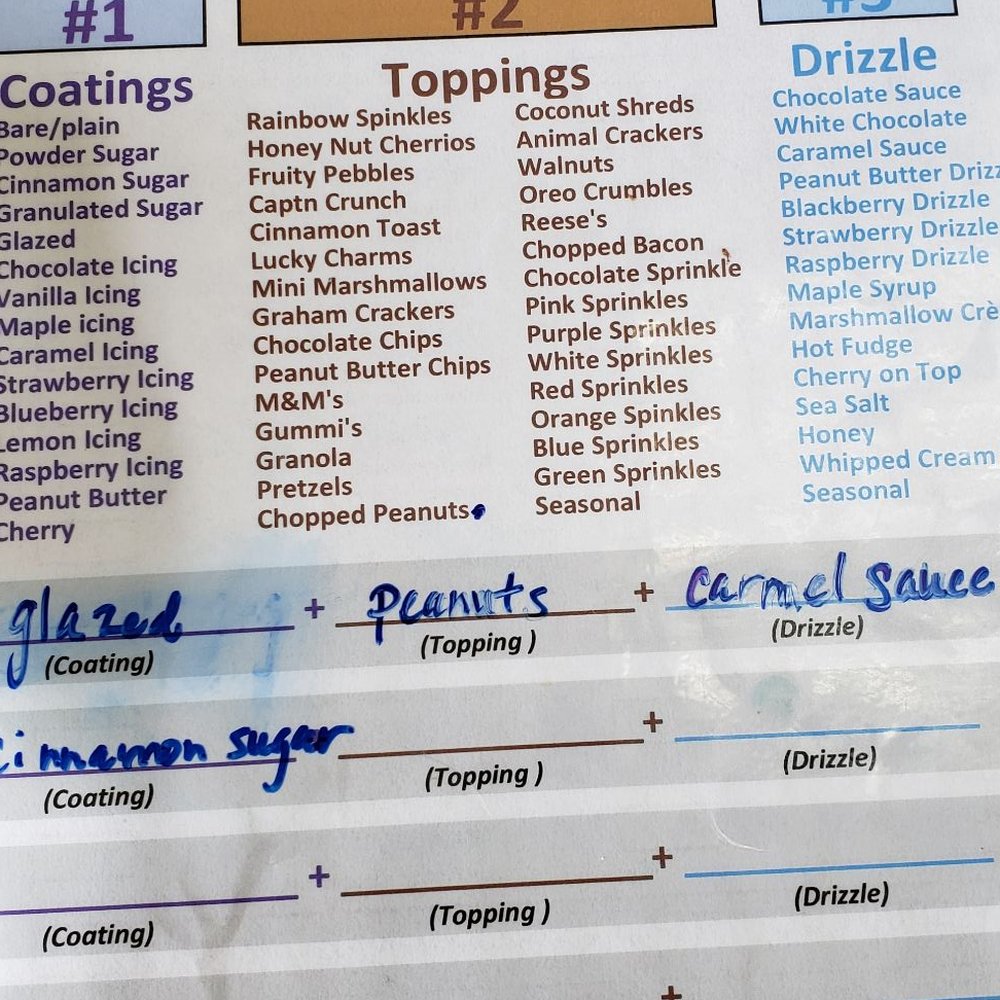 #1
#2
#3
Coatings
Bare/plain
Powder Sugar
Cinnamon Sugar
Granulated Sugar
Glazed
Chocolate Icing
Vanilla Icing
Maple icing
Caramel Icing
Strawberry Icing
Blueberry Icing
Lemon Icing
Raspberry Icing
Peanut Butter
Cherry
Toppings
Rainbow Sprinkles
Honey Nut Cherrios
Fruity Pebbles
Captn Crunch
Cinnamon Toast
Lucky Charms
Mini Marshmallows
Graham Crackers
Chocolate Chips
Peanut Butter Chips
M&M's
Gummi's
Granola
Pretzels
Chopped Peanuts
Coconut Shreds
Animal Crackers
Walnuts
Oreo Crumbles
Reese's
Chopped Bacon
Chocolate Sprinkle
Pink Sprinkles
Purple Sprinkles
White Sprinkles
Red Sprinkles
Orange Spinkles
Blue Sprinkles
Green Sprinkles
Seasonal
Drizzle
Chocolate Sauce
White Chocolate
Caramel Sauce
Peanut Butter Drizz
Blackberry Drizzle
Strawberry Drizzle
Raspberry Drizzle
Maple Syrup
Marshmallow Crè
Hot Fudge
Cherry on Top
Sea Salt
Honey
Whipped Cream
Seasonal
glazed + peanuts + carmel sauce
(Coating) (Topping ) (Drizzle)
cinnamon sugar +
(Coating) (Topping ) (Drizzle)
+ +
(Coating) (Topping ) (Drizzle)
+